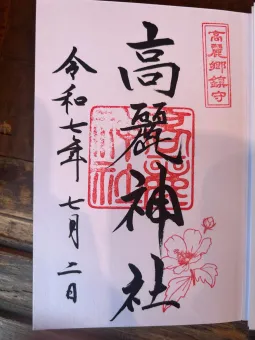 高麗郷鎮守
高麗神社
令和七年 七月 二日